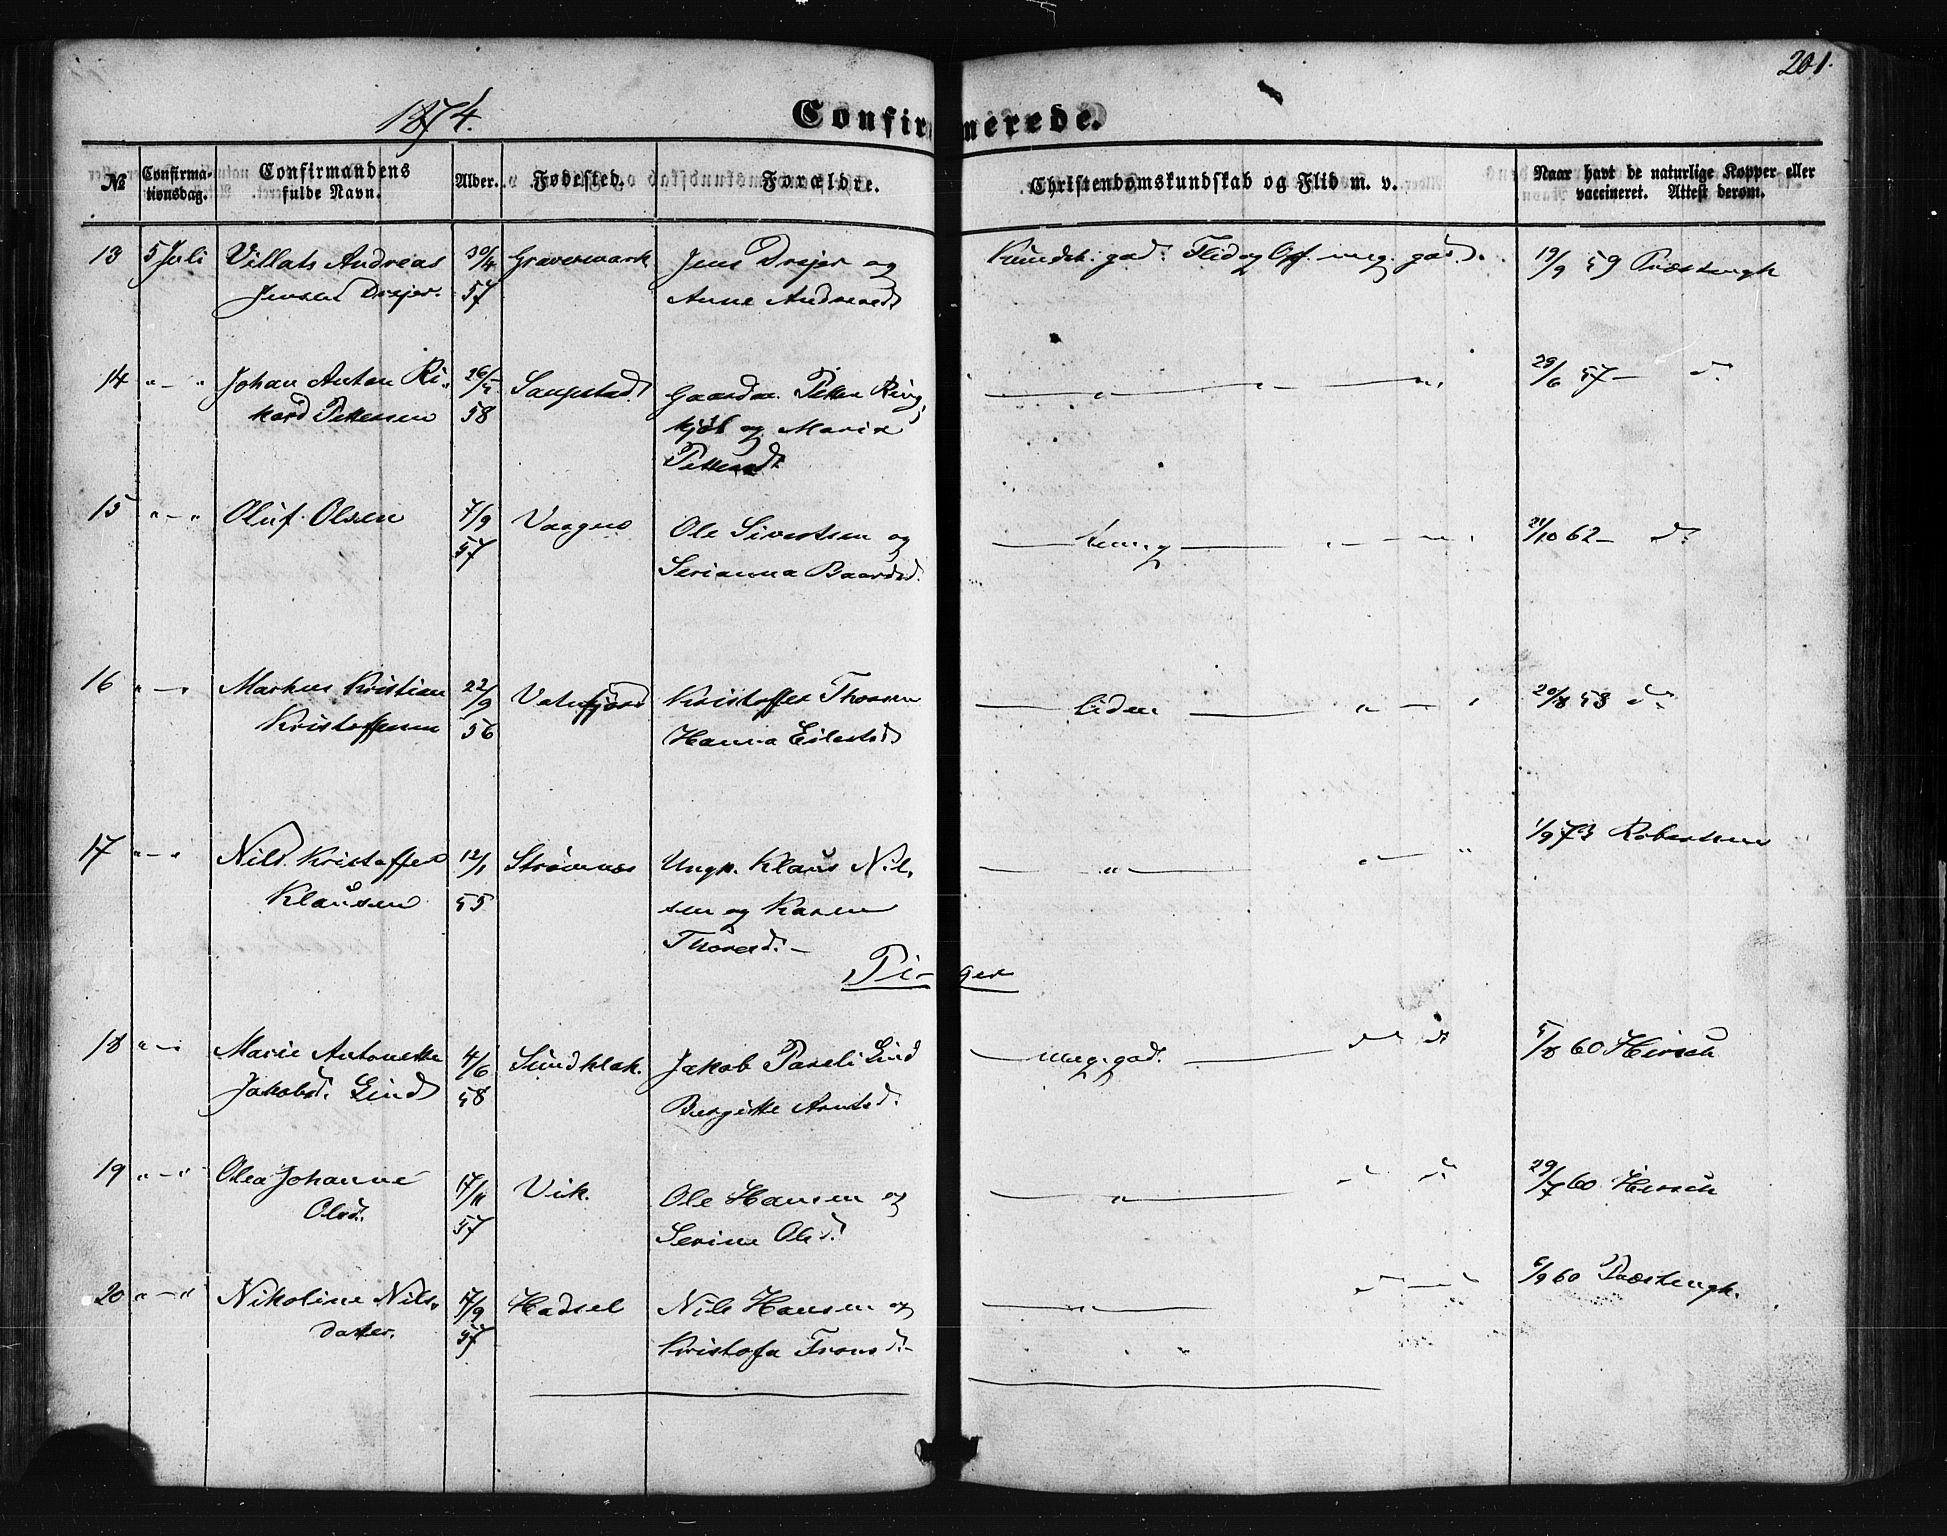 201.
1874.
Confirmerede.
№ Confirmationsdag. Confirmandens fulde Navn. Alder. Fødested. Forældre. Christendomskundskab og Flid m. v. Naar havt de naturlige Kopper eller vaccineret. Attest derom.
13 5 Juli Villats Andreas 30/4 Gravermark Jens Drejer og Kundsk. god. Flid og Opf. meg. god. 19/9 59
Jensen Drejer. 57 Anne Andreasd.
14 " — " Johan Anton Ri- 26/ Gaardm. Petter Ring 57 — d.
kard Pettersen 58 kjøb og Maria
Pettersd.
15 " — " Oluf Olsen 7/9 Vaagnes Ole Sivertsen og 21/10 62 — d.
57 Serianna Baardsd.
16 " — " Markus Kristian 22/9 Vatnfjord Kristoffer Thoresen — liden — 20/8 58 d.
Kristoffersen 56 Hanna Eilertsd
17 " — " Nils Kristoffer 12/1 Strømnes Ungk. Klaus Nil- — " — 1/9 73 Robertsen
Klausen 55 sen og Karen
Thoresd. —
Piger
18 " — " Marie Antonette 4/6 Sundklak. Jakob Pareli Lind — meg. god. — 5/8 60 Hirsch
Jakobsd. Lind 58 Birgitte Arntsd.
19 " — " Olea Johanne 17/11 Vik. Ole Hansen og — " — 29/7 60 Hirsch
Olsd. 57 Serine Olsd.
20 " — " Nikoline Nils- 17/9 Hadsel Nils Hansen og — " — 6/9 60
datter. 57 Kristofa Fransd. —